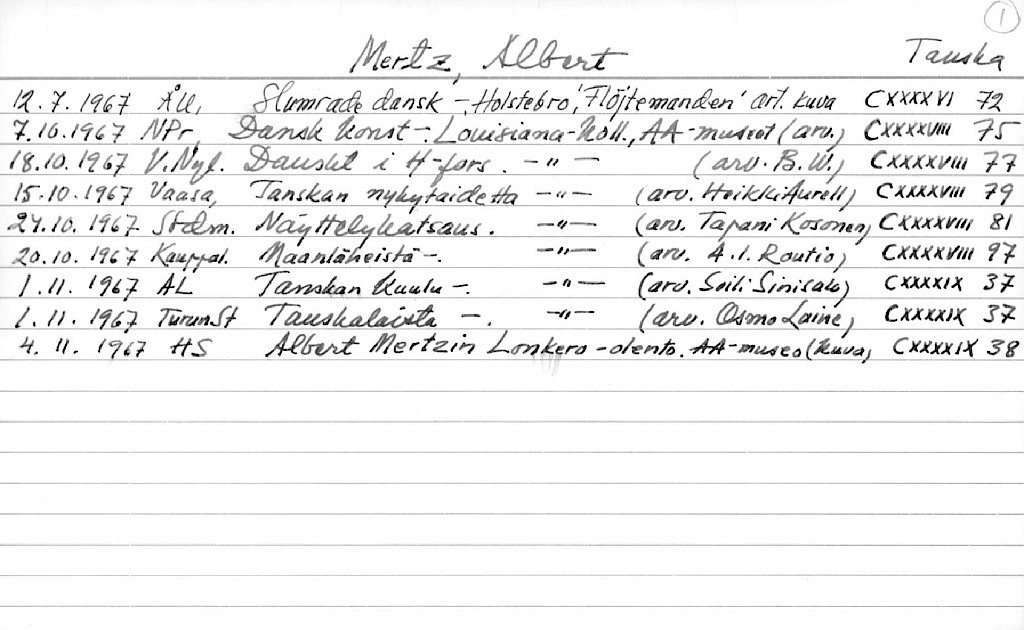 1
Mertz, Albert Tanska
12.7.1967 ÅU, Slumrade dansk -, Holstebro, 'Flöjtemanden' art. kuva CXXXXVI 72
7.10.1967 NPr, Dansk konst -. Louisiana-koll., AA-museet (arv.) CXXXXVIII 75
18.10.1967 V.Nyl. Danskt i H-fors. -"- (arv. B.W.) CXXXXVIII 77
15.10.1967 Vaasa, Tanskan nykytaidetta -"- (arv. Heikki Aurell) CXXXXVIII 79
24.10.1967 Näyttelykatsaus. -"- (arv. Tapani Kosonen) CXXXXVIII 81
20.10.1967 Kauppal. Maanläheistä -. -"- (arv. A.I. Routio) CXXXXVIII 97
1.11.1967 AL Tanskan kuulu -. -"- (arv. Soili Sinisalo) CXXXXIX 37
1.11.1967 TurunSt Tanskalaista -. -"- (arv. Osmo Laine) CXXXXIX 37
4.11.1967 HS Albert Mertzin Lonkero-olento. AA-museo (kuva) CXXXXIX 38